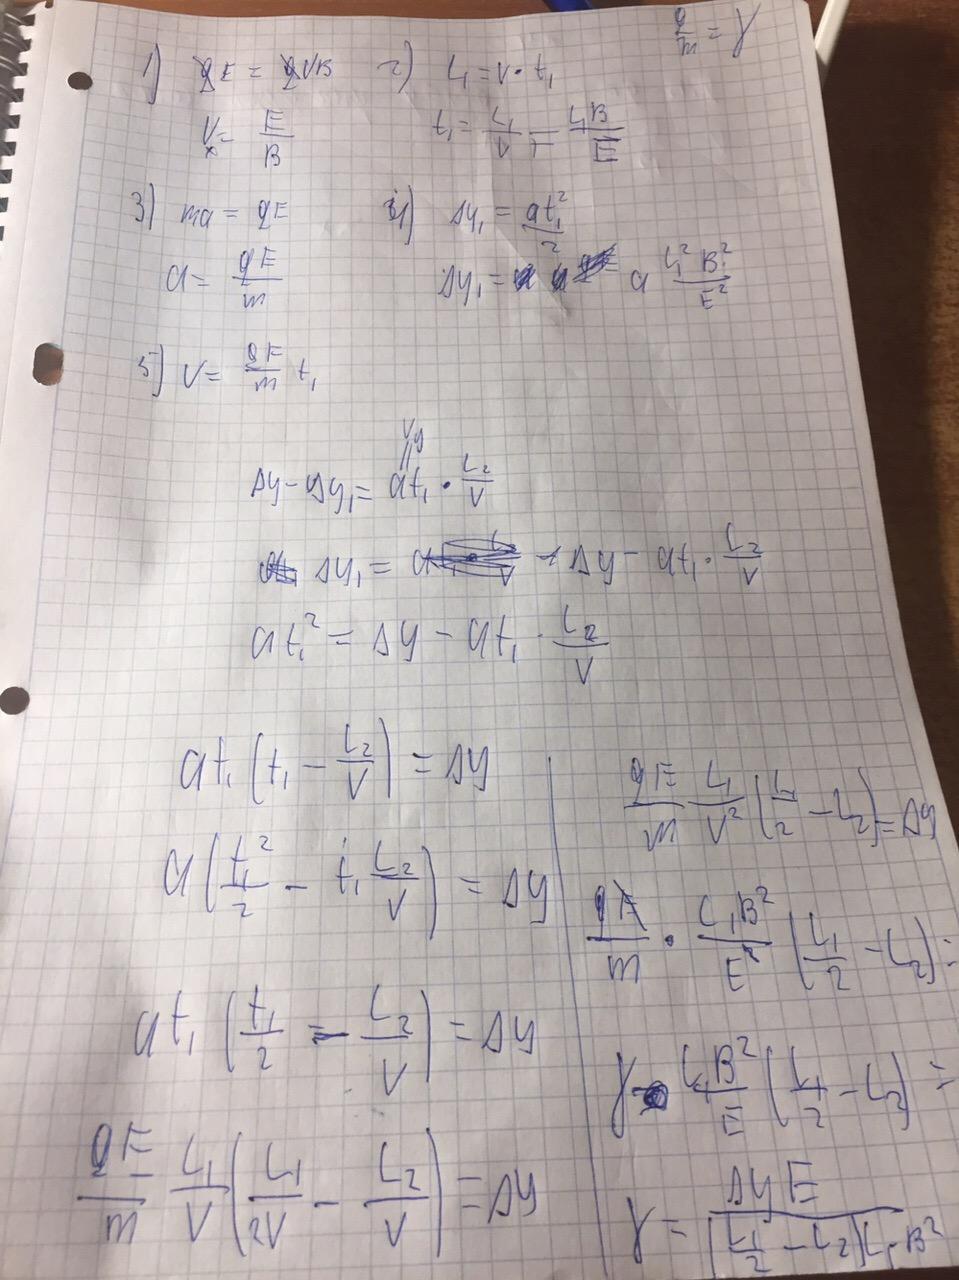 q/m = γ
1) qE = qVB 2) L₁ = V · t₁
Vₓ = E/B t₁ = L₁/V = L₁B/E
3) ma = qE 4) Δy₁ = at₁²/2
a = qE/m Δy₁ = a L₁²B²/E²
5) V = qE/m t₁
Vy
Δy - Δy₁ = at₁ · L₂/V
Δy₁ = Δy - at₁ · L₂/V
at₁² = Δy - at₁ · L₂/V
at₁ (t₁ - L₂/V) = Δy
a (t₁²/2 - t₁ L₂/V) = Δy
at₁ (t₁/2 - L₂/V) = Δy
qE/m L₁/V (L₁/2V - L₂/V) = Δy
qE/m L₁/V² (L₁/2 - L₂) = Δy
qE/m · L₁B²/E² (L₁/2 - L₂) =
γ L₁B²/E (L₁/2 - L₂) =
γ = ΔyE/(L₁/2 - L₂)L₁B²